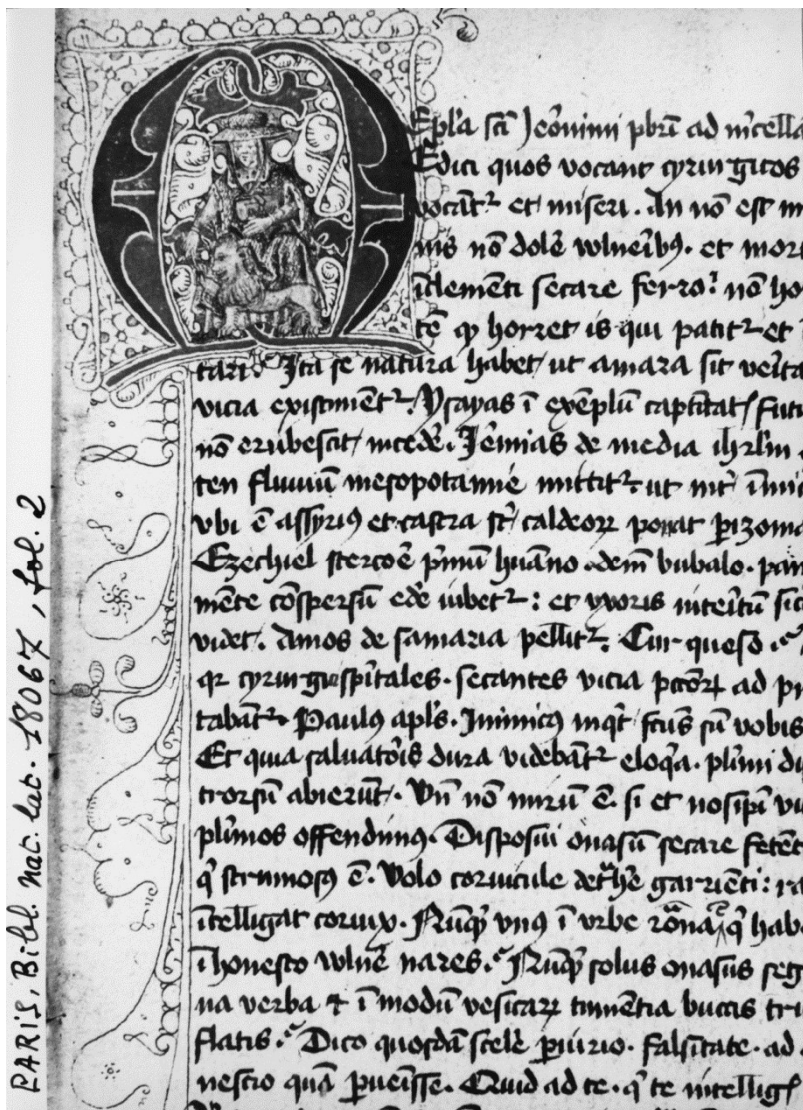 Epl'a sci Jeronimi pbri ad m'cella
Edici quos vocant cyrurgicos
vocāt² et miseri. An nō est m
nis nō dolē wlneibꝫ. et mor
īclementi secare ferro: nō ho
tē qͥ horret is qui patit² et
tari. Ita se natura habet ut amara sit verita
vicia existiment². Ysayas ī exēplū captitat Futu
nō erubescit incedē. Jēmias de media ihrlm
ten fluuiū mesopotamie mittit². ut int' īmic
vbi ē assyriꝯ et castra st' caldeoꝝ ponat pizoma
Ezechiel stercoē pmū huāno. dem bubalo. pan
mēte cōspersū edē iubet²: et vxoris inteitū sic
videt. Amos de samaria pellit². Cur queso.
qꝛ cyrurgi spitales. secantes vicia pctoꝝ ad p
tabāt². Paulꝯ apl's. Inimicꝯ inqt fctus sū vobis
Et quia saluatois dura videbāt² eloqa. plimi d
trorsū abierūt. Vn nō mirū ē. si et nos ipi vi
plimos offendimꝯ. Disposui onasū secare fetēt
q strumosꝯ ē. Volo cornicule dethē garrienti: ra
ītelligat cornix. Nūqͥ vnꝯ ī vrbe rōna q hab
īhonesto wlnē nares. Nūqͥ solus onasus seg
na verba ⁊ ī modū vesicaꝝ tumentia buccis tri
flatis. Dico quosdā scelē piurio. falsitate. ad
nescio quā pueisse. Quid ad te. q te intelligs
PARIS, Bibl. nat. lat. 18067, fol. 2